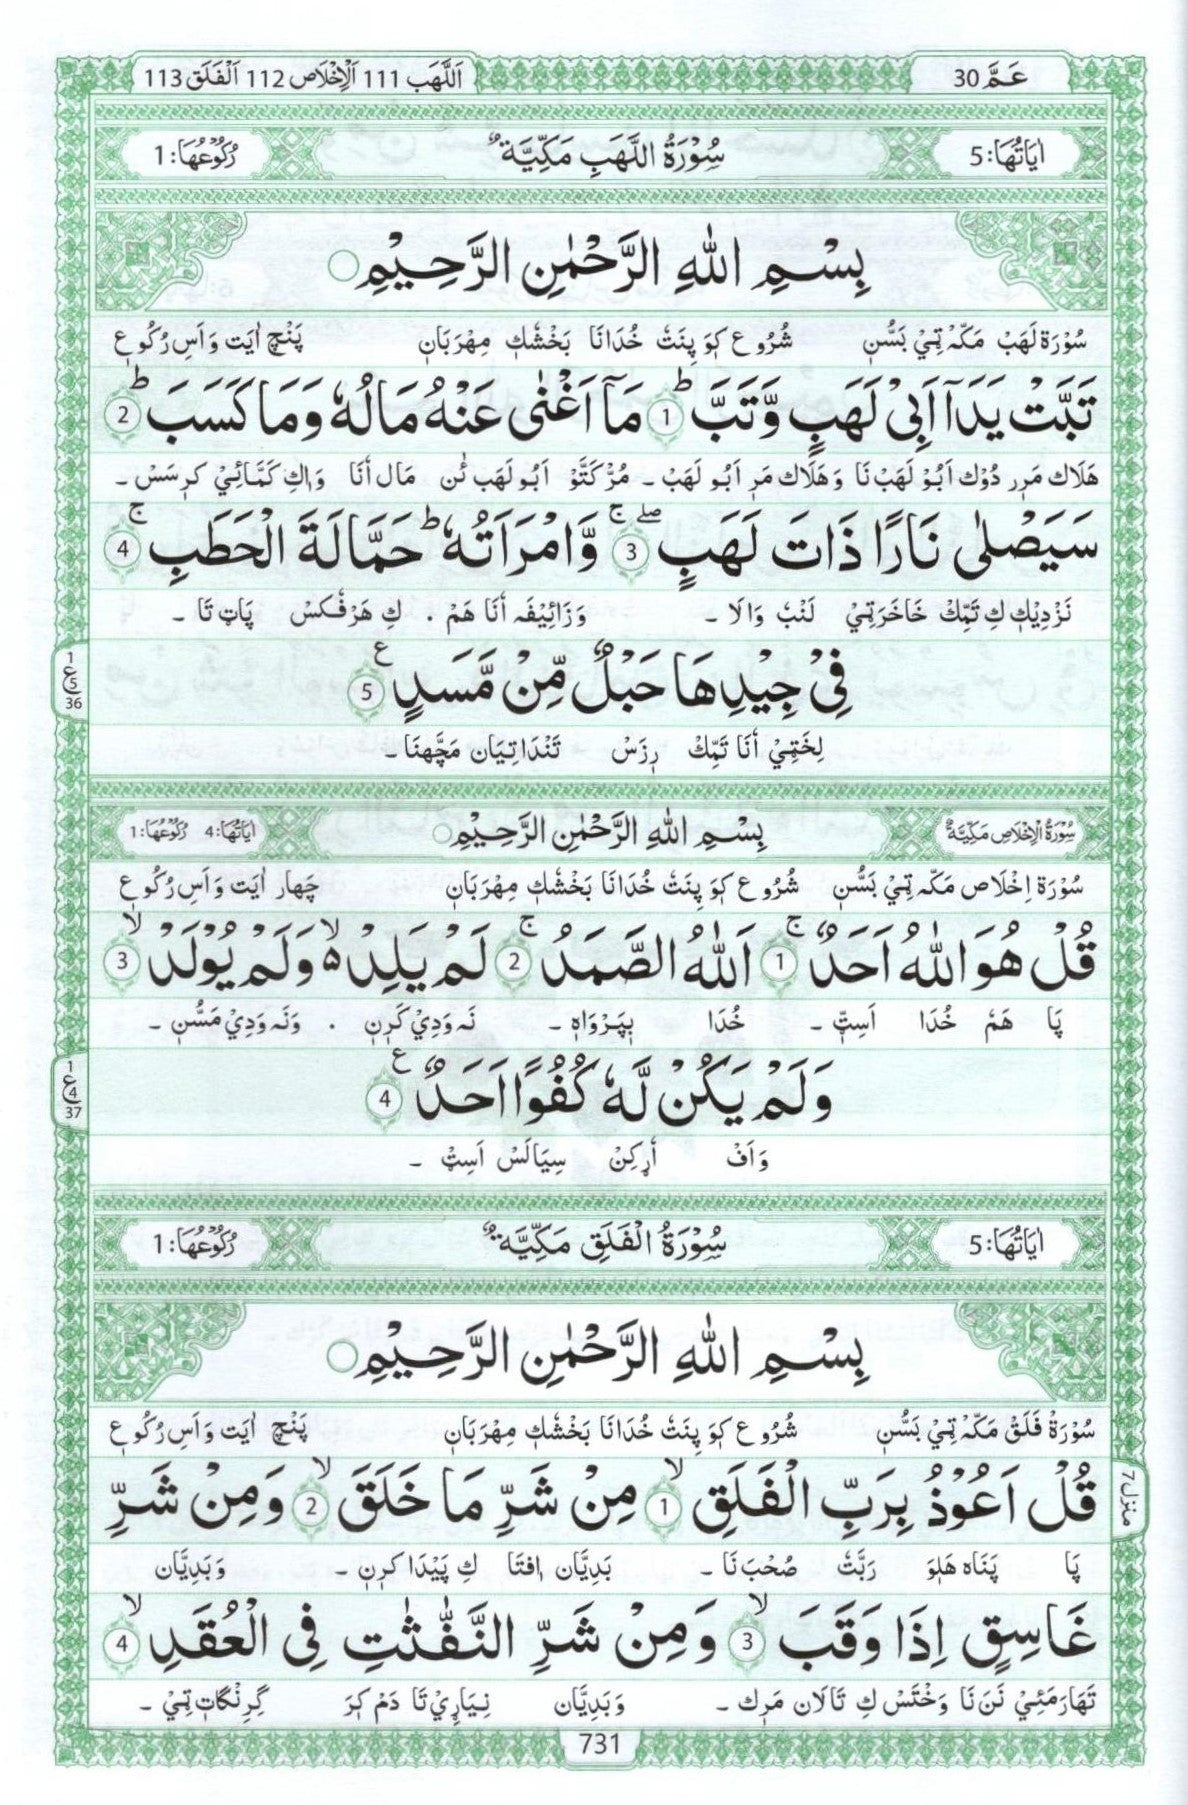 عَمَّ 30 اَللَّهَب 111 اَلْاِخْلَاص 112 اَلْفَلَق 113
اٰيَاتُهَا: 5 سُوْرَةُ اللَّهَبِ مَكِّيَّةٌ رُكُوْعُهَا: 1
بِسْمِ اللّٰهِ الرَّحْمٰنِ الرَّحِيْمِ
سُوْرَة لَهَبْ مَكّه تِيْ بَسُّنِ شُرُوع كوَ پِنَتْ خُدَانَا بَخْشك مِهْرَبَان پَنْچ اٰيَت وَ اَسِ رُكُوع
تَبَّتْ يَدَآ اَبِيْ لَهَبٍ وَّتَبَّ ؕ 1 مَآ اَغْنٰى عَنْهُ مَالُهٗ وَمَا كَسَبَ ؕ 2
هَلَاك مَرر دُوْك اَبُوْ لَهَبْ نَا وَ هَلَاك مَر اَبُو لَهَبْ ۔ مُژْ كَتَّوْ اَبُو لَهَب ئن مَال اُنَا وَ اكِ كَمَّائِيْ كرسَسْ ۔
سَيَصْلٰى نَارًا ذَاتَ لَهَبٍ ۖۚ 3 وَّامْرَاَتُهٗ ؕ حَمَّالَةَ الْحَطَبِ ۚ 4
نَزْدِيْك كِ تَمِّكْ خَاخَرَتِيْ لَنْبْ وَالَا ۔ وَ زَائِيْفَه اُنَا هَمْ . كِ هَرْفكسْ پَاتِ تَا ۔
فِيْ جِيْدِهَا حَبْلٌ مِّنْ مَّسَدٍ ۧ 5
1 ع 5 36
لِخَتِيْ اُنَا تَمِّكْ رِزَسْ تَنْدَاتِيَان مَچّهنَا ۔
سُوْرَةُ الْاِخْلَاصِ مَكِّيَّةٌ بِسْمِ اللّٰهِ الرَّحْمٰنِ الرَّحِيْمِ اٰيَاتُهَا: 4 رُكُوْعُهَا: 1
سُوْرَة اِخْلَاص مَكّه تِيْ بَسُّنِ شُرُوع كوَ پِنَتْ خُدَانَا بَخْشك مِهْرَبَان چَهار اٰيَت وَ اَسِ رُكُوع
قُلْ هُوَ اللّٰهُ اَحَدٌ ۚ 1 اَللّٰهُ الصَّمَدُ ۚ 2 لَمْ يَلِدْ ۙ۬ وَلَمْ يُوْلَدْ ۙ 3
پَا هَمْ خُدَا اَسِٹّ ۔ خُدَا بِپَرْوَاه ۔ نَه وَدِيْ كَرن . وَ نَه وَدِيْ مَسُّن ۔
وَلَمْ يَكُنْ لَّهٗ كُفُوًا اَحَدٌ ۧ 4
1 ع 4 37
وَ اَفْ اُركِنْ سِيَالَسْ اَسِٹ ۔
اٰيَاتُهَا: 5 سُوْرَةُ الْفَلَقِ مَكِّيَّةٌ رُكُوْعُهَا: 1
بِسْمِ اللّٰهِ الرَّحْمٰنِ الرَّحِيْمِ
سُوْرَة فَلَقْ مَكّه تِيْ بَسُّنِ شُرُوع كوَ پِنَتْ خُدَانَا بَخْشك مِهْرَبَان پَنْچ اٰيَت وَ اَسِ رُكُوع
قُلْ اَعُوْذُ بِرَبِّ الْفَلَقِ ۙ 1 مِنْ شَرِّ مَا خَلَقَ ۙ 2 وَمِنْ شَرِّ
منزل 7
پَا پَنَاه هَلوَ رَبَّتْ صُحْبَ نَا ۔ بَدِيَّان افتَا كِ پَيْدَا كرن ۔ وَ بَدِيَّان
غَاسِقٍ اِذَا وَقَبَ ۙ 3 وَمِنْ شَرِّ النَّفّٰثٰتِ فِي الْعُقَدِ ۙ 4
تَهَارمَئِيْ نَنَ نَا وَخْتَسْ كِ تَالَان مَرك ۔ وَ بَدِيَّان نِيَارِيْ تَا دَمْ كرَ گِرنْگَات تِيْ ۔
731